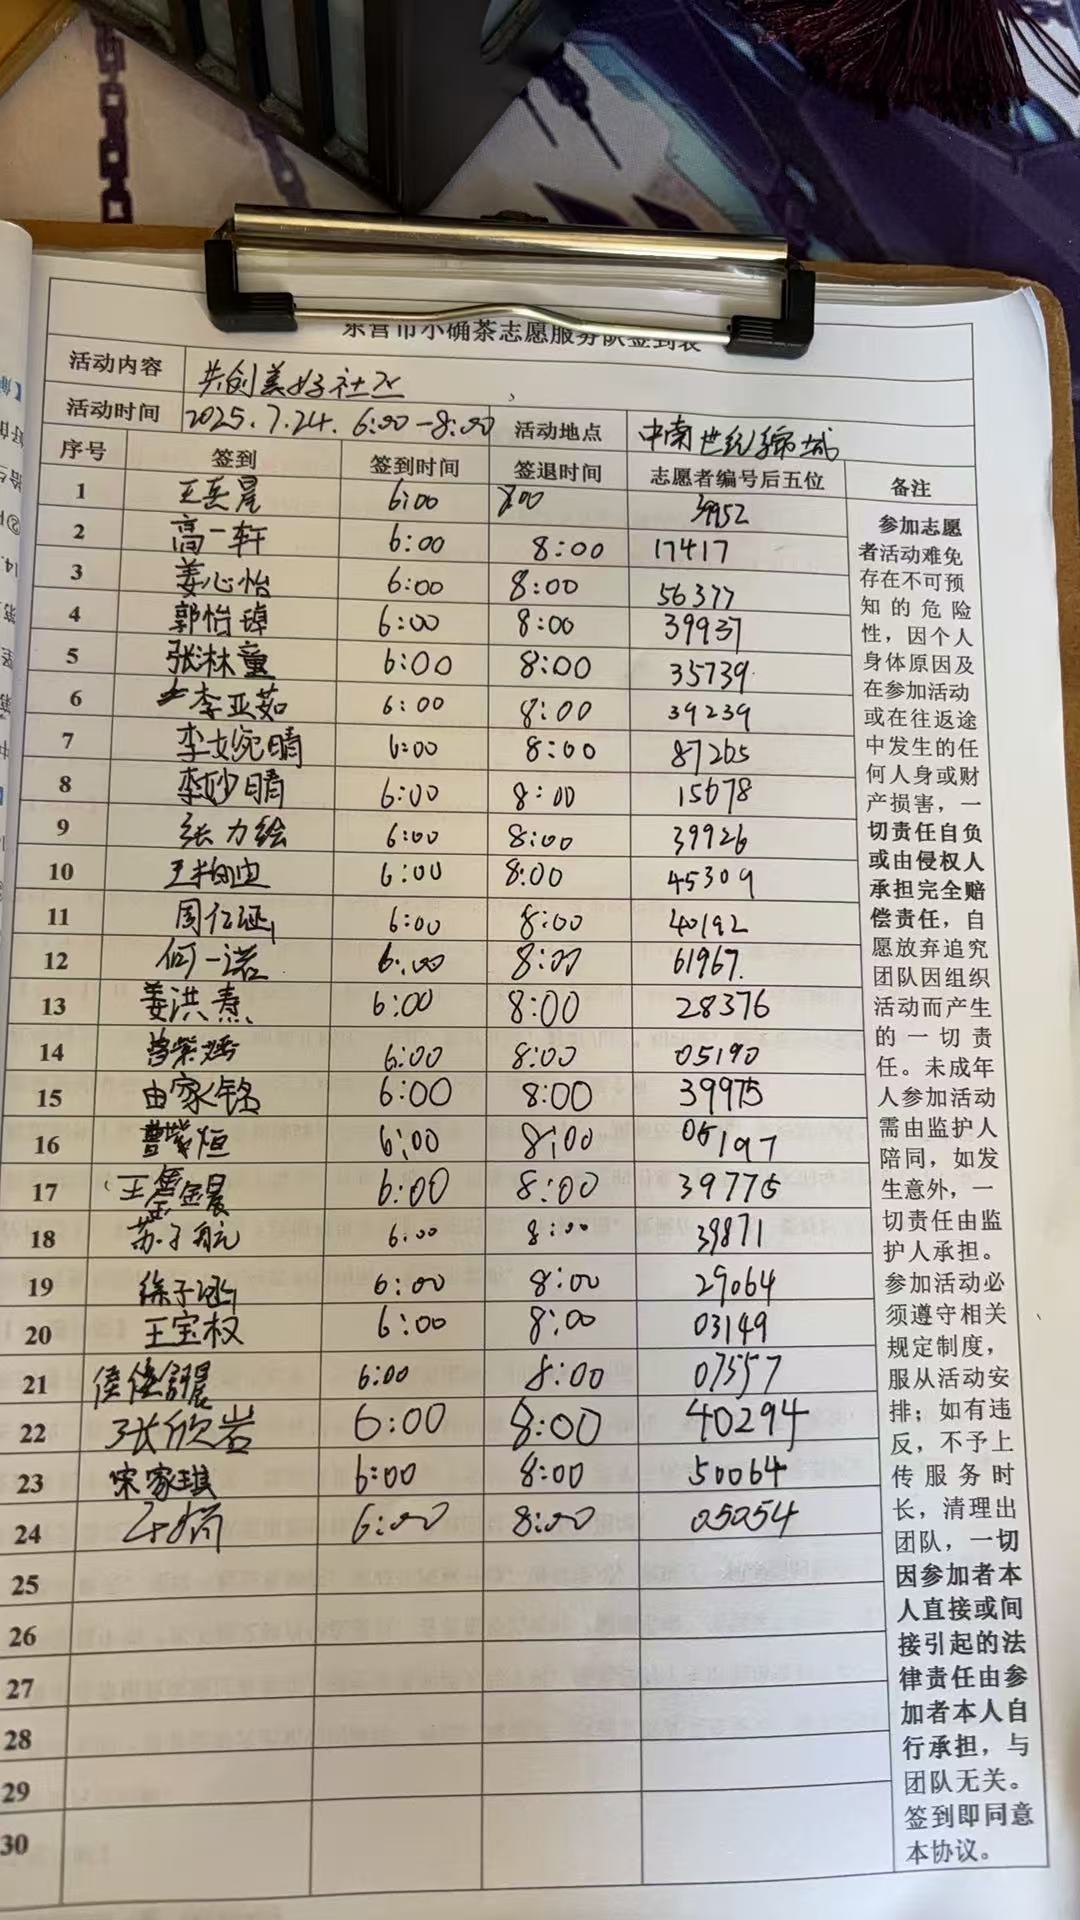 东营市小确茶志愿服务队签到表
活动内容 共创美好社区
活动时间 2025.7.24. 6:00-8:00 活动地点 中南世纪锦城
序号 签到 签到时间 签退时间 志愿者编号后五位 备注
1 6:00 8:00 39952
2 高一轩 6:00 8:00 17417
3 姜心怡 6:00 8:00 56377
4 郭怡璋 6:00 8:00 39937
5 张淋童 6:00 8:00 35739
6 李亚茹 6:00 8:00 39239
7 李婉晴 6:00 8:00 87265
8 李妙晴 6:00 8:00 15678
9 张力绘 6:00 8:00 39926
10 6:00 8:00 45309
11 周仁涵 6:00 8:00 40192
12 何一诺 6:00 8:00 61967.
13 姜洪熹 6:00 8:00 28376
14 曹紫 6:00 8:00 05190
15 由家铭 6:00 8:00 39975
16 曹紫恒 6:00 8:00 05197
17 王 6:00 8:00 39775
18 苏子航 6:00 8:00 39871
19 徐子涵 6:00 8:00 29064
20 王宝权 6:00 8:00 03149
21 6:00 8:00 07557
22 张欣岩 6:00 8:00 40294
23 宋家琪 6:00 8:00 50064
24 6:00 8:00 05054
25
26
27
28
29
30
参加志愿
者活动难免
存在不可预
知的危险
性，因个人
身体原因及
在参加活动
或在往返途
中发生的任
何人身或财
产损害，一
切责任自负
或由侵权人
承担完全赔
偿责任，自
愿放弃追究
团队因组织
活动而产生
的一切责
任。未成年
人参加活动
需由监护人
陪同，如发
生意外，一
切责任由监
护人承担。
参加活动必
须遵守相关
规定制度，
服从活动安
排；如有违
反，不予上
传服务时
长，清理出
团队，一切
因参加者本
人直接或间
接引起的法
律责任由参
加者本人自
行承担，与
团队无关。
签到即同意
本协议。